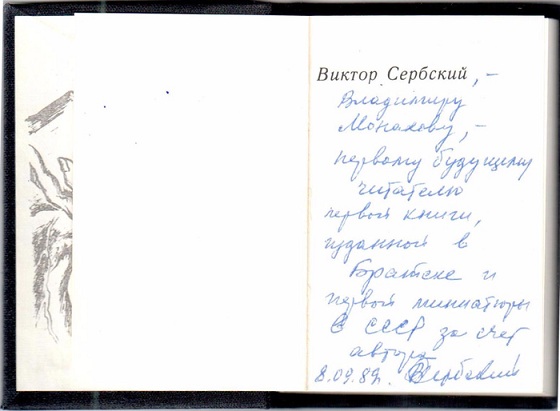 Виктор Сербский, –
Владимиру
Монахову, –
первому будущему
читателю
первой книги,
изданной в
Братске и
первой миниатюры
в СССР за счет
автора
8.09.89г. ВСербский